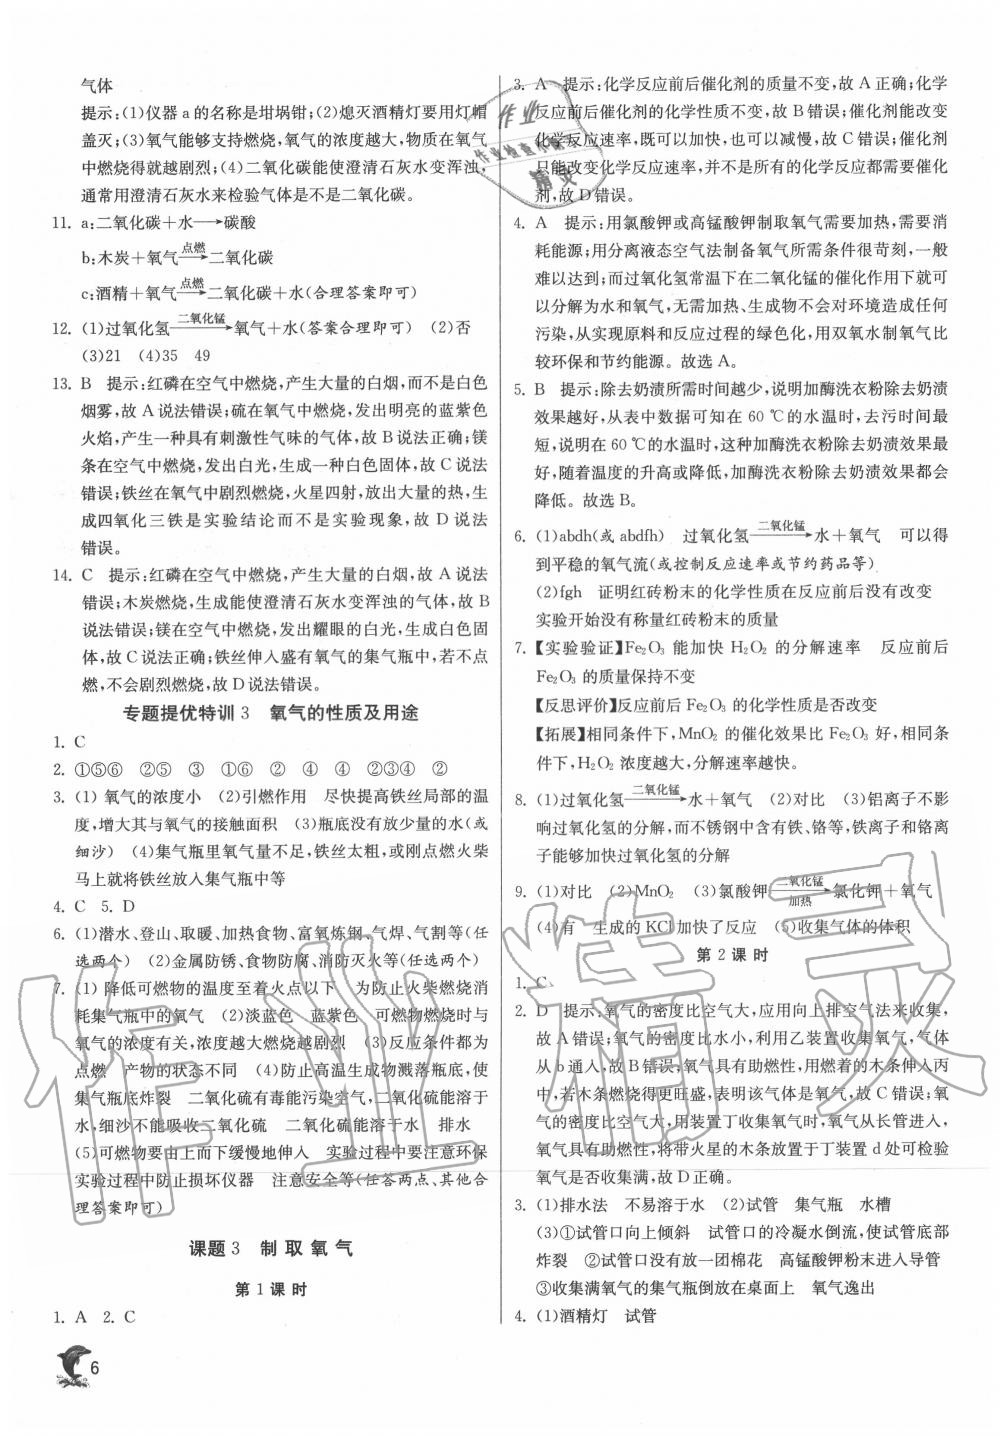 气体
提示:(1)仪器 a 的名称是坩埚钳;(2)熄灭酒精灯要用灯帽
盖灭;(3)氧气能够支持燃烧,氧气的浓度越大,物质在氧气
中燃烧得就越剧烈;(4)二氧化碳能使澄清石灰水变浑浊,
通常用澄清石灰水来检验气体是不是二氧化碳。
11. a:二氧化碳+水⟶碳酸
b:木炭+氧气—点燃→二氧化碳
c:酒精+氧气—点燃→二氧化碳+水(合理答案即可)
12. (1)过氧化氢—二氧化锰→氧气+水(答案合理即可) (2)否
(3)21 (4)35 49
13. B 提示:红磷在空气中燃烧,产生大量的白烟,而不是白色
烟雾,故 A 说法错误;硫在氧气中燃烧,发出明亮的蓝紫色
火焰,产生一种具有刺激性气味的气体,故 B 说法正确;镁
条在空气中燃烧,发出白光,生成一种白色固体,故 C 说法
错误;铁丝在氧气中剧烈燃烧,火星四射,放出大量的热,生
成四氧化三铁是实验结论而不是实验现象,故 D 说法
错误。
14. C 提示:红磷在空气中燃烧,产生大量的白烟,故 A 说法
错误;木炭燃烧,生成能使澄清石灰水变浑浊的气体,故 B
说法错误;镁在空气中燃烧,发出耀眼的白光,生成白色固
体,故 C 说法正确;铁丝伸入盛有氧气的集气瓶中,若不点
燃,不会剧烈燃烧,故 D 说法错误。
专题提优特训 3 氧气的性质及用途
1. C
2. ①⑤⑥ ②⑤ ③ ①⑥ ② ④ ④ ②③④ ②
3. (1) 氧气的浓度小 (2)引燃作用 尽快提高铁丝局部的温
度,增大其与氧气的接触面积 (3)瓶底没有放少量的水(或
细沙) (4)集气瓶里氧气量不足,铁丝太粗,或刚点燃火柴
马上就将铁丝放入集气瓶中等
4. C 5. D
6. (1)潜水、登山、取暖、加热食物、富氧炼钢、气焊、气割等(任
选两个) (2)金属防锈、食物防腐、消防灭火等(任选两个)
7. (1) 降低可燃物的温度至着火点以下 为防止火柴燃烧消
耗集气瓶中的氧气 (2)淡蓝色 蓝紫色 可燃物燃烧时与
氧气的浓度有关,浓度越大燃烧越剧烈 (3)反应条件都为
点燃 产物的状态不同 (4)防止高温生成物溅落瓶底,使
集气瓶底炸裂 二氧化硫有毒能污染空气,二氧化硫能溶于
水,细沙不能吸收二氧化硫 二氧化硫能溶于水 排水
(5)可燃物要由上而下缓慢地伸入 实验过程中要注意环保
实验过程中防止损坏仪器 注意安全等(任答两点、其他合
理答案即可)
课题 3 制取氧气
第 1 课时
1. A 2. C
6
3. A 提示:化学反应前后催化剂的质量不变,故 A 正确;化学
反应前后催化剂的化学性质不变,故 B 错误;催化剂能改变
化学反应速率,既可以加快,也可以减慢,故 C 错误;催化剂
只能改变化学反应速率,并不是所有的化学反应都需要催化
剂,故 D 错误。
4. A 提示:用氯酸钾或高锰酸钾制取氧气需要加热,需要消
耗能源;用分离液态空气法制备氧气所需条件很苛刻,一般
难以达到;而过氧化氢常温下在二氧化锰的催化作用下就可
以分解为水和氧气,无需加热、生成物不会对环境造成任何
污染,从实现原料和反应过程的绿色化,用双氧水制氧气比
较环保和节约能源。故选 A。
5. B 提示:除去奶渍所需时间越少,说明加酶洗衣粉除去奶渍
效果越好,从表中数据可知在 60 ℃的水温时,去污时间最
短,说明在 60 ℃的水温时,这种加酶洗衣粉除去奶渍效果最
好,随着温度的升高或降低,加酶洗衣粉除去奶渍效果都会
降低。故选 B。
6. (1)abdh(或 abdfh) 过氧化氢—二氧化锰→水+氧气 可以得
到平稳的氧气流(或控制反应速率或节约药品等)
(2)fgh 证明红砖粉末的化学性质在反应前后没有改变
实验开始没有称量红砖粉末的质量
7. 【实验验证】Fe₂O₃ 能加快 H₂O₂ 的分解速率 反应前后
Fe₂O₃ 的质量保持不变
【反思评价】反应前后 Fe₂O₃ 的化学性质是否改变
【拓展】相同条件下,MnO₂ 的催化效果比 Fe₂O₃ 好,相同条
件下,H₂O₂ 浓度越大,分解速率越快。
8. (1)过氧化氢—二氧化锰→水+氧气 (2)对比 (3)铝离子不影
响过氧化氢的分解,而不锈钢中含有铁、铬等,铁离子和铬离
子能够加快过氧化氢的分解
9. (1)对比 (2)MnO₂ (3)氯酸钾—二氧化锰/加热→氯化钾+氧气
(4)有 生成的 KCl 加快了反应 (5)收集气体的体积
第 2 课时
1. C
2. D 提示:氧气的密度比空气大,应用向上排空气法来收集,
故 A 错误;氧气的密度比水小,利用乙装置收集氧气,气体
从 b 通入,故 B 错误;氧气具有助燃性,用燃着的木条伸入丙
中,若木条燃烧得更旺盛,表明该气体是氧气,故 C 错误;氧
气的密度比空气大,用装置丁收集氧气时,氧气从长管进入,
氧气具有助燃性,将带火星的木条放置于丁装置 d 处可检验
氧气是否收集满,故 D 正确。
3. (1)排水法 不易溶于水 (2)试管 集气瓶 水槽
(3)①试管口向上倾斜 试管口的冷凝水倒流,使试管底部
炸裂 ②试管口没有放一团棉花 高锰酸钾粉末进入导管
③收集满氧气的集气瓶倒放在桌面上 氧气逸出
4. (1)酒精灯 试管
作业精灵